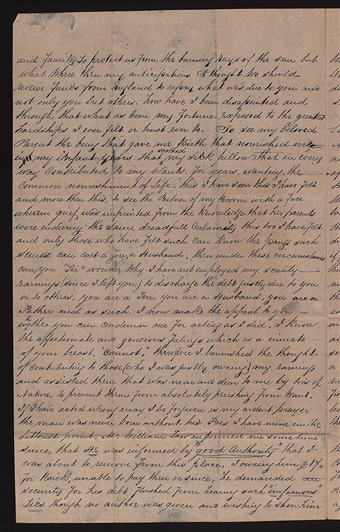 and Family to protect us from the burning days of the sun but
what where then my anticipations I thought we should
receive Funds from England to repay what was due to you and
not only you but others. how have I been disapointed and
through that what as been my Fortune exposed to the greatest
hardships I ever felt or trust ever to. To see my beloved
Parent the being that gave me Birth that nourished me
in my Infant years that my sick pillow that in every
way Contributed to my Wants. for years, wanting the
Common nourishment of Life. this I have seen this I have felt
and more then this, to see the Partner of my bosom with a Face
wherein grief was imprinted from the Knowledge that her parents
were enduring the same dreadful Calamity this too I have felt
and only those who have felt such Can Know the pangs such
scenes can cast o'er a Husband, then under these circumstances
can you Sir wonder why I have not employed my scanty
Earnings (since I left you) to discharge the debt justly due to you
or to others, you are a Son, you are a Husband, you are a
Father and as such I now make the appeal to you
wether you can condemn me for acting as I did, I Know
the affectionate and generous Feelings which is a inmate
of your breast, "cannot," therefore I banished the thought
of contributing to those (who I was justly oweing) my Earnings
and assisted them that was near and dear to me by ties of
Nature, to prevent them from absolutely perishing from Want.
If I have acted wrong may I be forgiven is my ardent prayer
the man was never born without his Foes I have mine in the
bitterest point, Mr William Law informed me some time
since, that he was informed by good Authority that I
was about to remove from this place, I oweing him $17
for Brick, unable to pay then or since, he demanded
security for his debt Flushed from hearing such infamous
lies though no author was given and wishing to show him